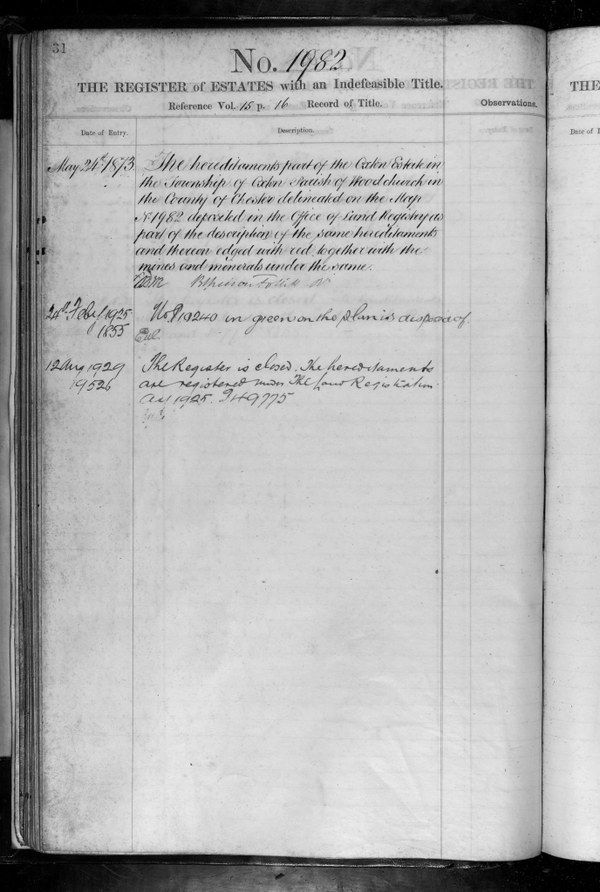 31
No. 1982
THE REGISTER of ESTATES with an Indefeasible Title.
Reference Vol. 15 p. 16 Record of Title.
Observations.
Date of Entry.
Description.
May 24th 1873
The hereditaments part of the Oxton Estate in
the Township of Oxton Parish of Woodchurch in
the County of Chester delineated on the Map
No 1982 deposited in the Office of Land Registry as
part of the description of the same hereditaments
and thereon edged with red together with the
mines and minerals under the same.
24th Feby 1925
1855
No P10240 in green on the plan is disposed of.
12 Aug 1929
19526
The Register is closed. The hereditaments
are registered under The Land Registration
Act 1925.
THE
Date of E